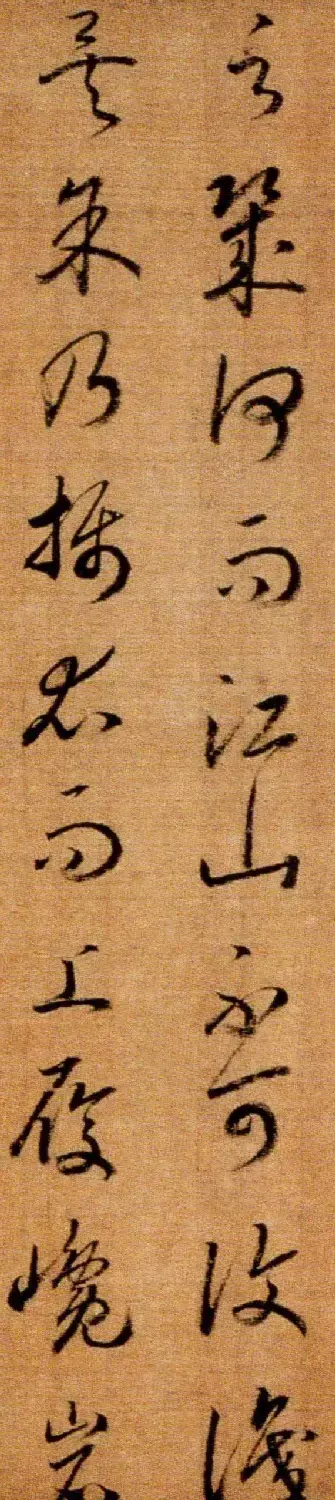 之幾何而江山不可復識
矣余乃攝衣而上履巉岩